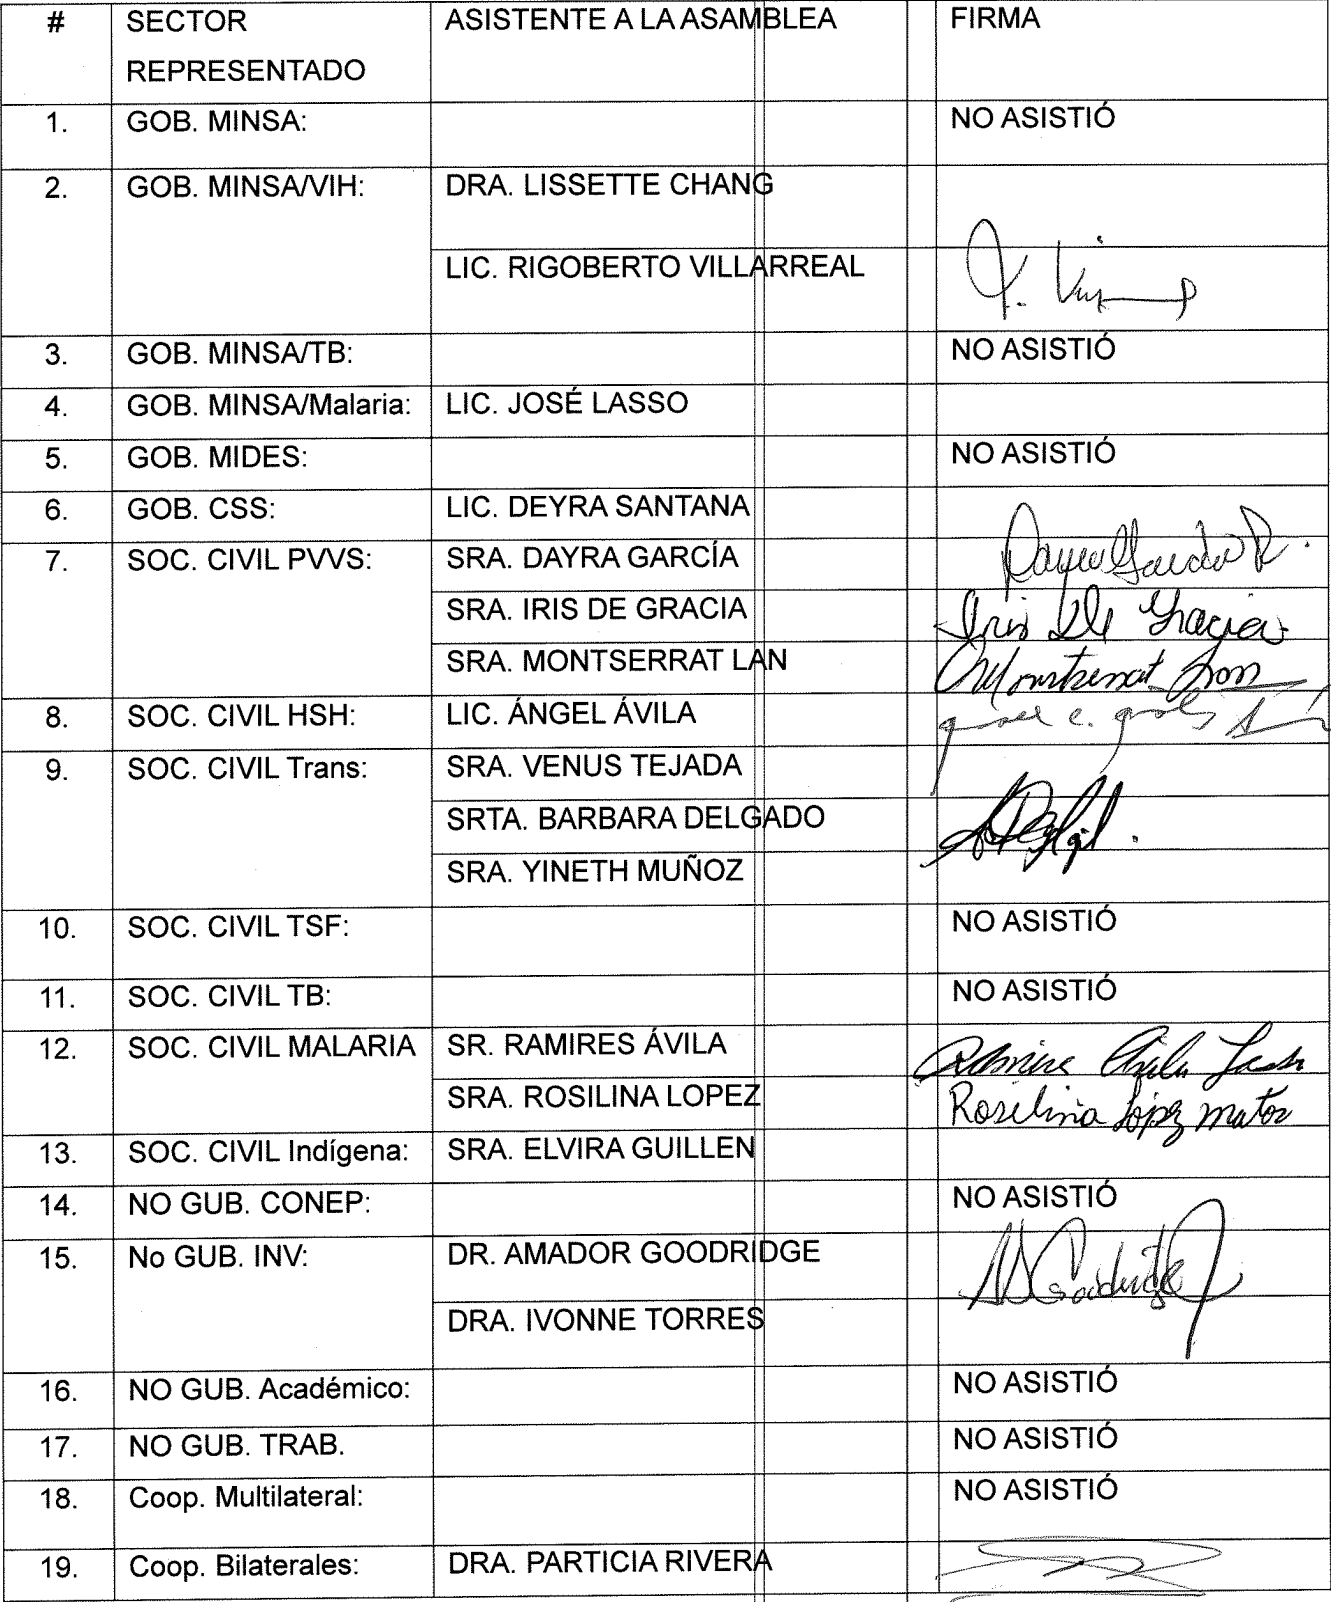 # SECTOR REPRESENTADO ASISTENTE A LA ASAMBLEA FIRMA
1. GOB. MINSA: NO ASISTIÓ
2. GOB. MINSA/VIH: DRA. LISSETTE CHANG
LIC. RIGOBERTO VILLARREAL
3. GOB. MINSA/TB: NO ASISTIÓ
4. GOB. MINSA/Malaria: LIC. JOSÉ LASSO
5. GOB. MIDES: NO ASISTIÓ
6. GOB. CSS: LIC. DEYRA SANTANA
7. SOC. CIVIL PVVS: SRA. DAYRA GARCÍA
SRA. IRIS DE GRACIA Iris De Gracia
SRA. MONTSERRAT LAN Montserrat
8. SOC. CIVIL HSH: LIC. ÁNGEL ÁVILA
9. SOC. CIVIL Trans: SRA. VENUS TEJADA
SRTA. BARBARA DELGADO
SRA. YINETH MUÑOZ
10. SOC. CIVIL TSF: NO ASISTIÓ
11. SOC. CIVIL TB: NO ASISTIÓ
12. SOC. CIVIL MALARIA SR. RAMIRES ÁVILA
SRA. ROSILINA LOPEZ Rosilina López
13. SOC. CIVIL Indígena: SRA. ELVIRA GUILLEN
14. NO GUB. CONEP: NO ASISTIÓ
15. No GUB. INV: DR. AMADOR GOODRIDGE Goodridge
DRA. IVONNE TORRES
16. NO GUB. Académico: NO ASISTIÓ
17. NO GUB. TRAB. NO ASISTIÓ
18. Coop. Multilateral: NO ASISTIÓ
19. Coop. Bilaterales: DRA. PARTICIA RIVERA